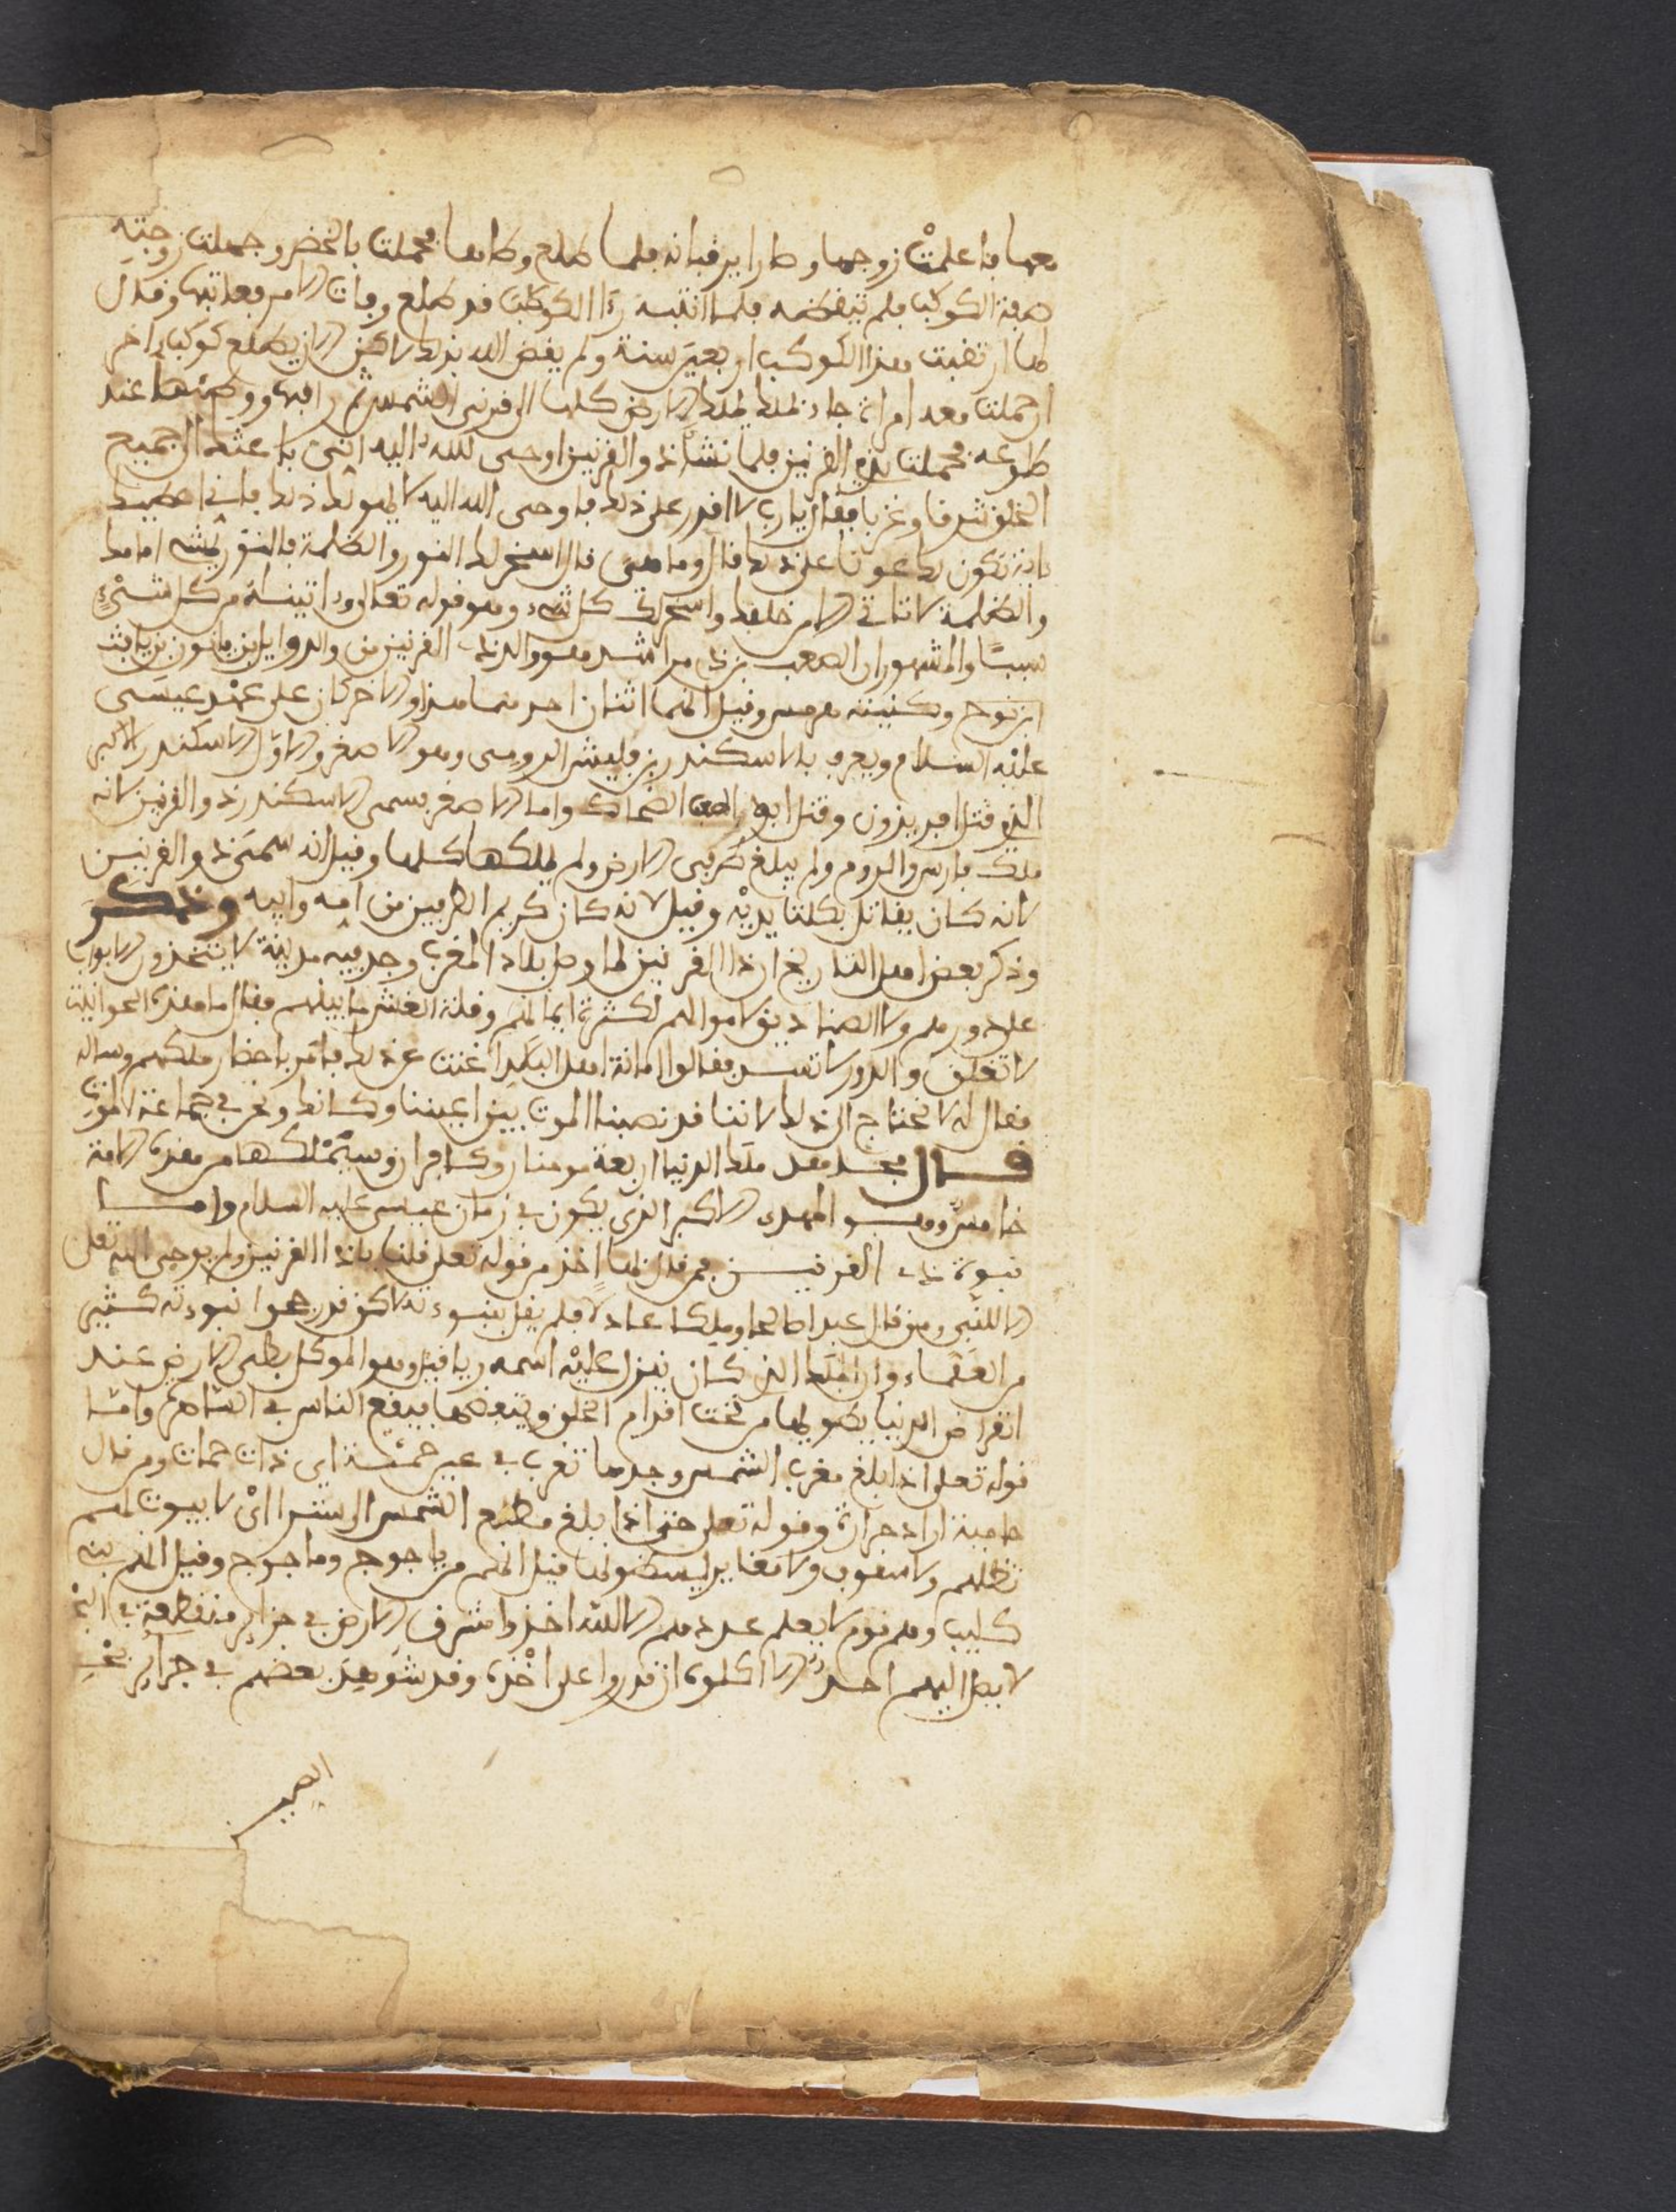 معها فاعلمت زوجها وطارا يرقبانه فلما طلع وطاها فحملت بالخضر وحملت زوجته
صفة الكوكب فلم تيقضه فلما انتبه رءا الكوكب قد طلع وفات الامر فعاتبها وقال
لها ارتقبت هذا الكوكب اربعين سنة ولم يقض الله بذلك لاكن الان يطلع كوكب اخر
ان حملت معه امراة جاءت بملك يملك الارض كلها الى قرني الشمس ثم راقبها ووطئها عند
طلوعه فحملت بذي القرنين فلما نشأ ذو القرنين اوحى الله اليه اني باعثك الى جميع
الخلق شرقا وغربا فقال يارب لا اقدر على ذلك فاوحى الله اليه لا يهولك ذلك فاني اعطيتك
ما به تكون لك عونا على ذلك قال وما هي قال اسخر لك النور والظلمة فالنور يمشي امامك
والظلمة تاتي من خلفك واسخر لك كل شيء وهو قوله تعالى وءاتيناه من كل شيء
سببا والمشهور ان الصعب بن ذي مراثد هو ذو القرنين من ولد وايل بن يافث
ابن نوح وكنيته هرمس وقيل انهما اثنان احدهما هذا والاخر كان على عهد عيسى
عليه السلام ويعرف بالاسكندر بن فليش الرومي وهو الاصغر والاول الاسكندر الاكبر
الذي قتل افريذون وقتل ابوه الضحاك واما الاصغر يسمى الاسكندر ذو القرنين لانه
ملك فارس والروم ولم يبلغ طرفي الارض ولم يملكها كلها وقيل انه سمي ذو القرنين
لانه كان يقاتل بكلتا يديه وقيل لانه كان كريم الطرفين من امه وابيه وذكر
وذكر بعض اهل التاريخ ان ذا القرنين لما وصل بلاد المغرب وجد فيه مدينة لا يتخذون الابواب
على دورهم ولا الصناديق لاموالهم لكثرة ايمانهم وقلة الغش ما بينهم فقال ما هذه الحوانيت
لا تغلق والدور لا تسد فقالوا امانة اهل البلد اغنت عن ذلك فامر باحضار ملكهم وساله
فقال له لا نحتاج الى ذلك لاننا قد نصبنا الموت بين اعيننا وكانك ونحن في جماعة الموتى
قال مجاهد ملك الدنيا اربعة مومنان وكافران وسيملكها من هذه الامة
خامس وهو المهدي الاكبر الذي يكون في زمان عيسى عليه السلام واما
نبوة ذي القرنين فمن قال بها اخذ من قوله تعلى قلنا ياذا القرنين ولم يوحى الله تعلى
الا للنبي ومن قال عبدا صالحا وملكا عادلا فلم يقل بنبوءته لاكن قد رجحوا نبوءته كثير
من العلماء وان الملك الذي كان ينزل عليه اسمه ريافيل وهو الموكل بطي الارض عند
انقراض الدنيا يطويها من تحت اقدام الخلق ويقبضها فيقع الناس في الساهرة واما
قوله تعلى اذا بلغ مغرب الشمس وجدها تغرب في عين حمئة اي ذات حمات ومن قال
حامية اراد حرارة وقوله تعلى حتى اذا بلغ مطلع الشمس الى سترا اي لا بيوت لهم
تظلهم ولا سقوف ولا مغاير ليسكنونها قيل انهم من ياجوج وماجوج وقيل انهم بنو
كليب وهم قوم لا يعلم عددهم الا الله اخذوا مشرق الارض في جزاير منقطعة في البحر
لا يصل اليهم احد الا اكلوه ان قدروا على اخذه وقد شوهد بعضهم في جزاير بحر
الصين